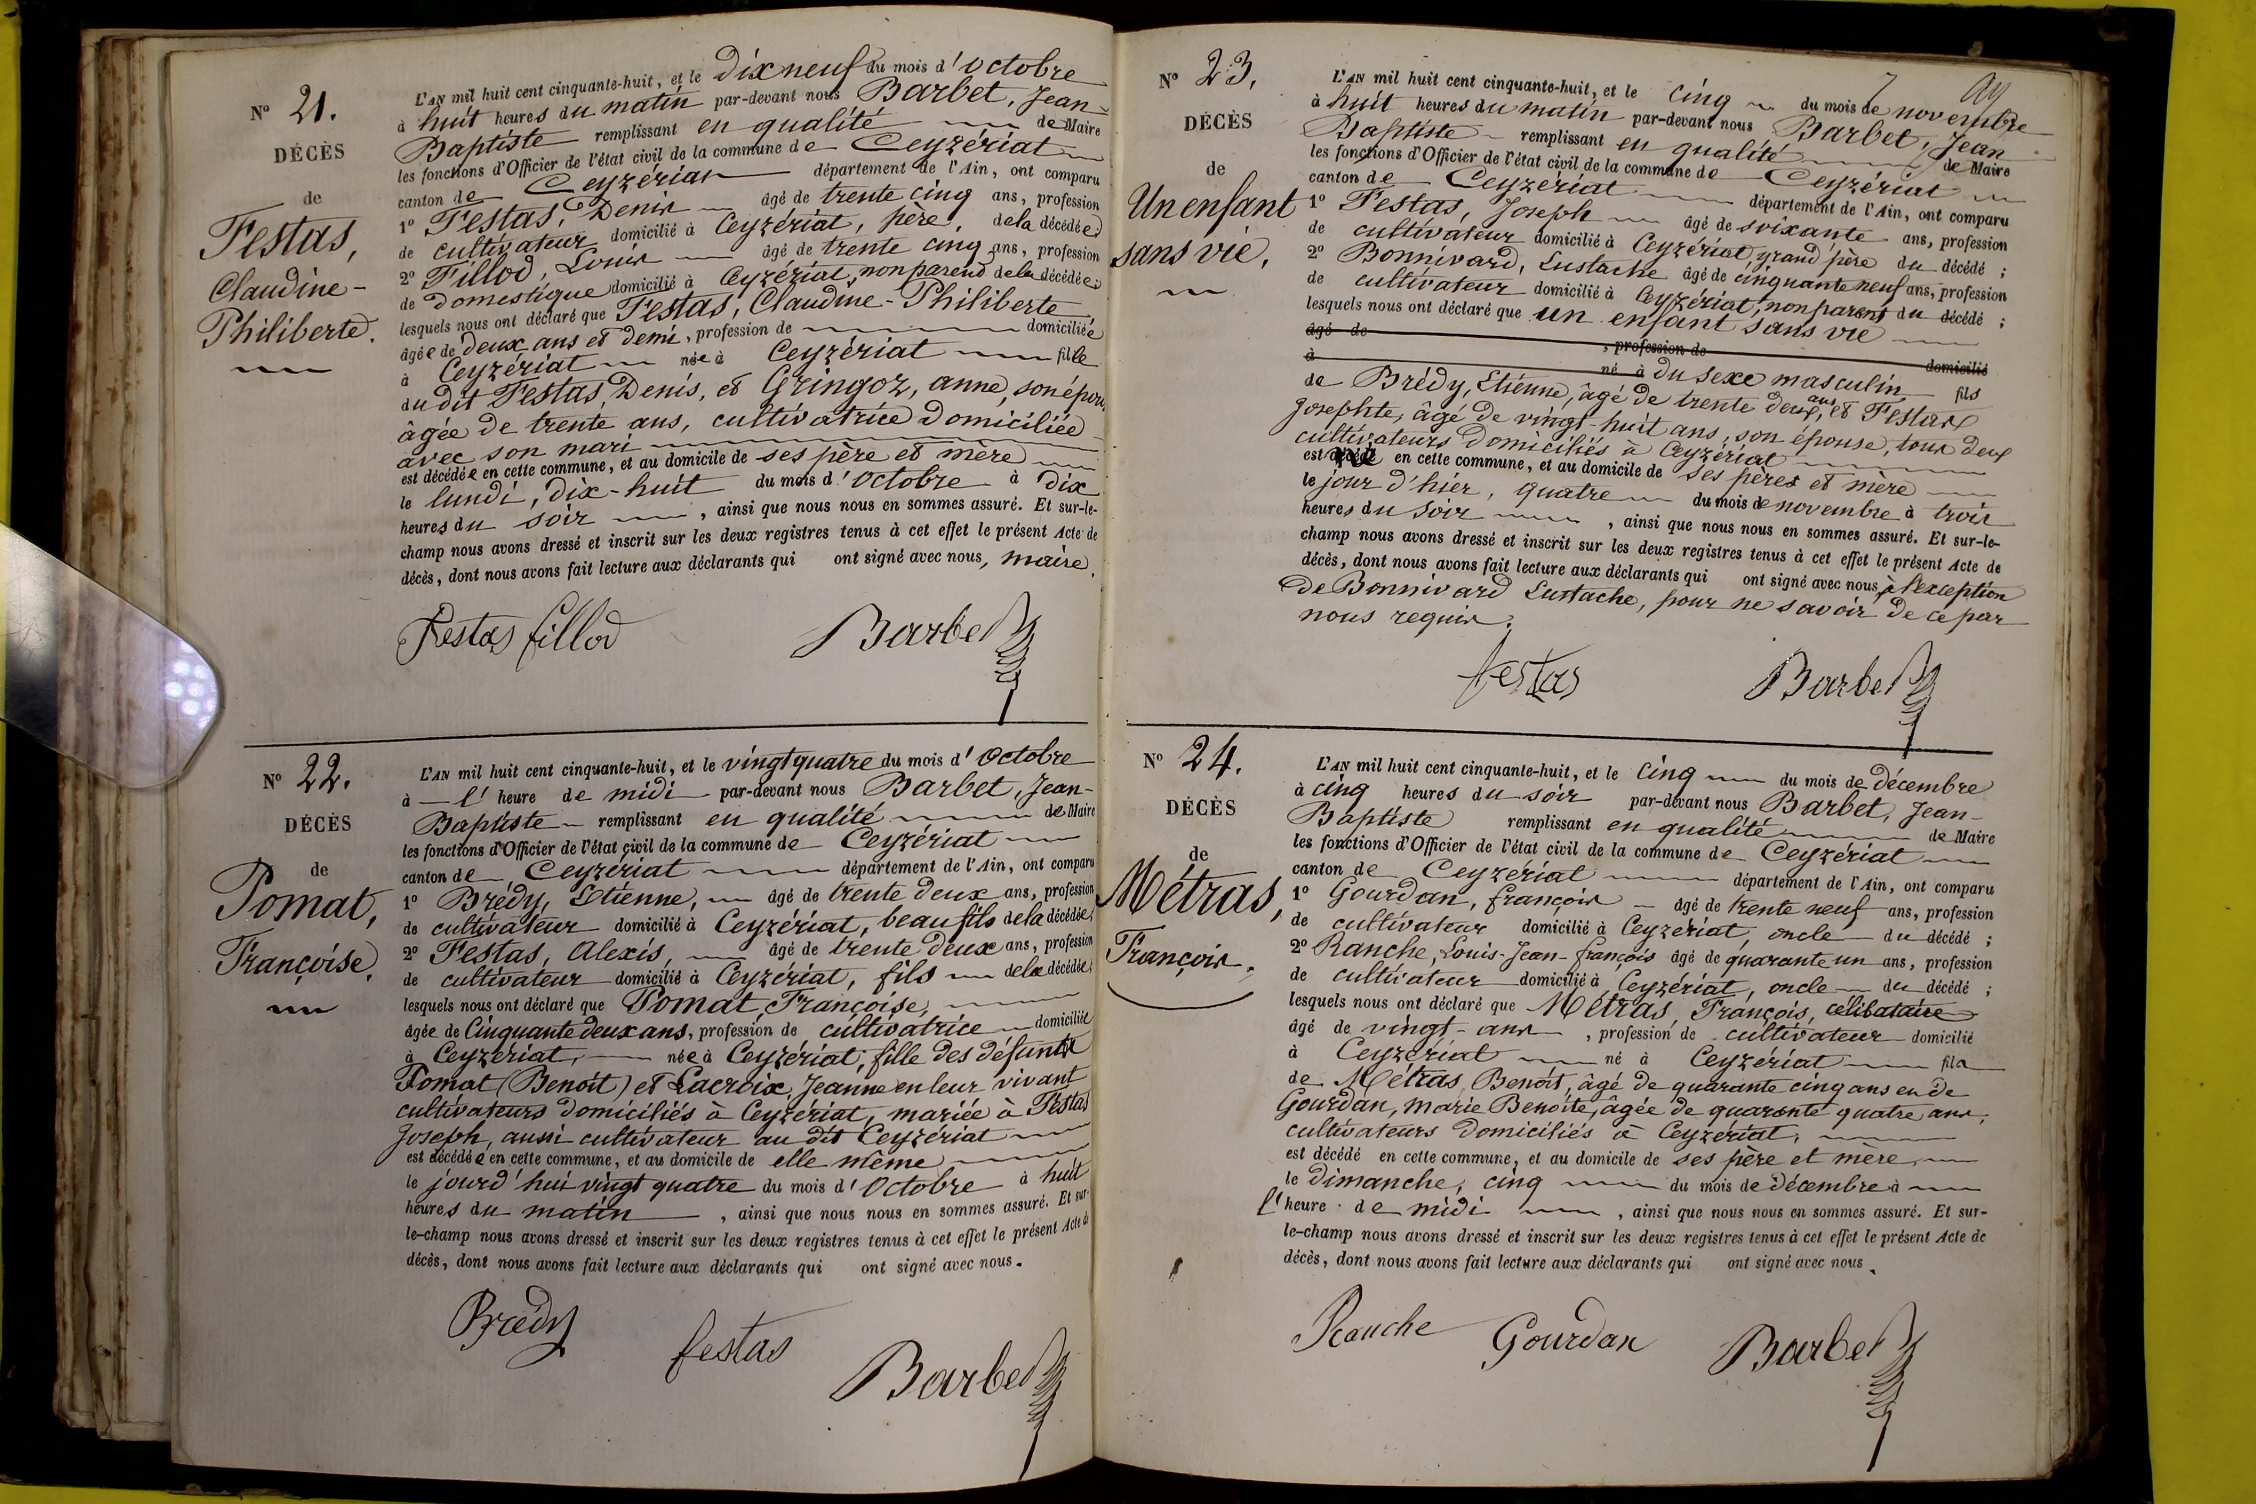 N° 21.
DÉCÈS
de
Festas,
Claudine-
Philiberte.
L'AN mil huit cent cinquante-huit, et le dix neuf du mois d'octobre
à huit heures du matin par-devant nous Barbet, Jean-
Baptiste remplissant en qualité de Maire
les fonctions d'Officier de l'état civil de la commune de Ceyzériat
canton de Ceyzériat département de l'Ain, ont comparu
1° Festas, Denis âgé de trente cinq ans, profession
de cultivateur domicilié à Ceyzériat, père, de la décédée;
2° Fillod, Louis âgé de trente cinq ans, profession
de domestique domicilié à Ceyzériat, non parend de la décédée;
lesquels nous ont déclaré que Festas, Claudine-Philiberte
âgée de deux ans et demi, profession de domiciliée
à Ceyzériat née à Ceyzériat fille
du dit Festas, Denis, et Gringoz, anne, son épouse,
âgée de trente ans, cultivatrice domiciliée
avec son mari
est décédée en cette commune, et au domicile de ses père et mère
le lundi, dix-huit du mois d'octobre à dix
heures du soir , ainsi que nous nous en sommes assuré. Et sur-le-
champ nous avons dressé et inscrit sur les deux registres tenus à cet effet le présent Acte de
décès, dont nous avons fait lecture aux déclarants qui ont signé avec nous, maire.
Festas fillod Barbet
N° 22.
DÉCÈS
de
Pomat,
Françoise.
L'AN mil huit cent cinquante-huit, et le vingt quatre du mois d'Octobre
à l'heure de midi par-devant nous Barbet, Jean-
Baptiste remplissant en qualité de Maire
les fonctions d'Officier de l'état civil de la commune de Ceyzériat
canton de Ceyzériat département de l'Ain, ont comparu
1° Brédy, Etienne, âgé de trente deux ans, profession
de cultivateur domicilié à Ceyzériat, beau fils de la décédée;
2° Festas, Alexis, âgé de trente deux ans, profession
de cultivateur domicilié à Ceyzériat, fils de la décédée;
lesquels nous ont déclaré que Pomat, Françoise,
âgée de Cinquante deux ans, profession de cultivatrice domiciliée
à Ceyzériat, née à Ceyzériat, fille des défunts
Pomat (Benoit) et Lacroix, Jeanne en leur vivant
cultivateurs domiciliés à Ceyzériat, mariée à Festas
Joseph, aussi cultivateur au dit Ceyzériat
est décédée en cette commune, et au domicile de elle même
le jourd'hui vingt quatre du mois d'Octobre à huit
heures du matin , ainsi que nous nous en sommes assuré. Et sur-
le-champ nous avons dressé et inscrit sur les deux registres tenus à cet effet le présent Acte de
décès, dont nous avons fait lecture aux déclarants qui ont signé avec nous.
Brédy festas Barbet
N° 23.
DÉCÈS
de
Un enfant
sans vie.
L'AN mil huit cent cinquante-huit, et le cinq du mois de novembre
à huit heures du matin par-devant nous Barbet, Jean
Baptiste remplissant en qualité de Maire
les fonctions d'Officier de l'état civil de la commune de Ceyzériat
canton de Ceyzériat département de l'Ain, ont comparu
1° Festas, Joseph âgé de soixante ans, profession
de cultivateur domicilié à Ceyzériat, grand père du décédé ;
2° Bonnivard, Eustache âgé de cinquante neuf ans, profession
de cultivateur domicilié à Ceyzériat, non parent du décédé ;
lesquels nous ont déclaré que un enfant sans vie
âgé de , profession de domicilié
à né à du sexe masculin fils
de Brédy, Etienne, âgé de trente deux ans, et Festas
Josephte, âgé de vingt-huit ans, son épouse, tous deux
cultivateurs domiciliés à Ceyzériat
est né en cette commune, et au domicile de ses pères et mère
le jour d'hier, quatre du mois de novembre à trois
heures du soir , ainsi que nous nous en sommes assuré. Et sur-le-
champ nous avons dressé et inscrit sur les deux registres tenus à cet effet le présent Acte de
décès, dont nous avons fait lecture aux déclarants qui ont signé avec nous, à l'exception
de Bonnivard Eustache, pour ne savoir de ce par
nous requis.
festas Barbet
N° 24.
DÉCÈS
de
Métras,
François.
L'AN mil huit cent cinquante-huit, et le cinq du mois de décembre
à cinq heures du soir par-devant nous Barbet, Jean-
Baptiste remplissant en qualité de Maire
les fonctions d'Officier de l'état civil de la commune de Ceyzériat
canton de Ceyzériat département de l'Ain, ont comparu
1° Gourdan, françois âgé de trente neuf ans, profession
de cultivateur domicilié à Ceyzériat, oncle du décédé ;
2° Ranche, Louis-Jean-françois âgé de quarante un ans, profession
de cultivateur domicilié à Ceyzériat, oncle du décédé ;
lesquels nous ont déclaré que Métras, François, célibataire
âgé de vingt-ans , profession de cultivateur domicilié
à Ceyzériat né à Ceyzériat fils
de Métras, Benoit, âgé de quarante cinq ans en de
Gourdan, Marie Benoite, âgée de quarante quatre ans,
cultivateurs domiciliés à Ceyzériat,
est décédé en cette commune, et au domicile de ses père et mère,
le dimanche, cinq du mois de décembre à
l'heure de midi , ainsi que nous nous en sommes assuré. Et sur-
le-champ nous avons dressé et inscrit sur les deux registres tenus à cet effet le présent Acte de
décès, dont nous avons fait lecture aux déclarants qui ont signé avec nous.
Ranche Gourdan Barbet